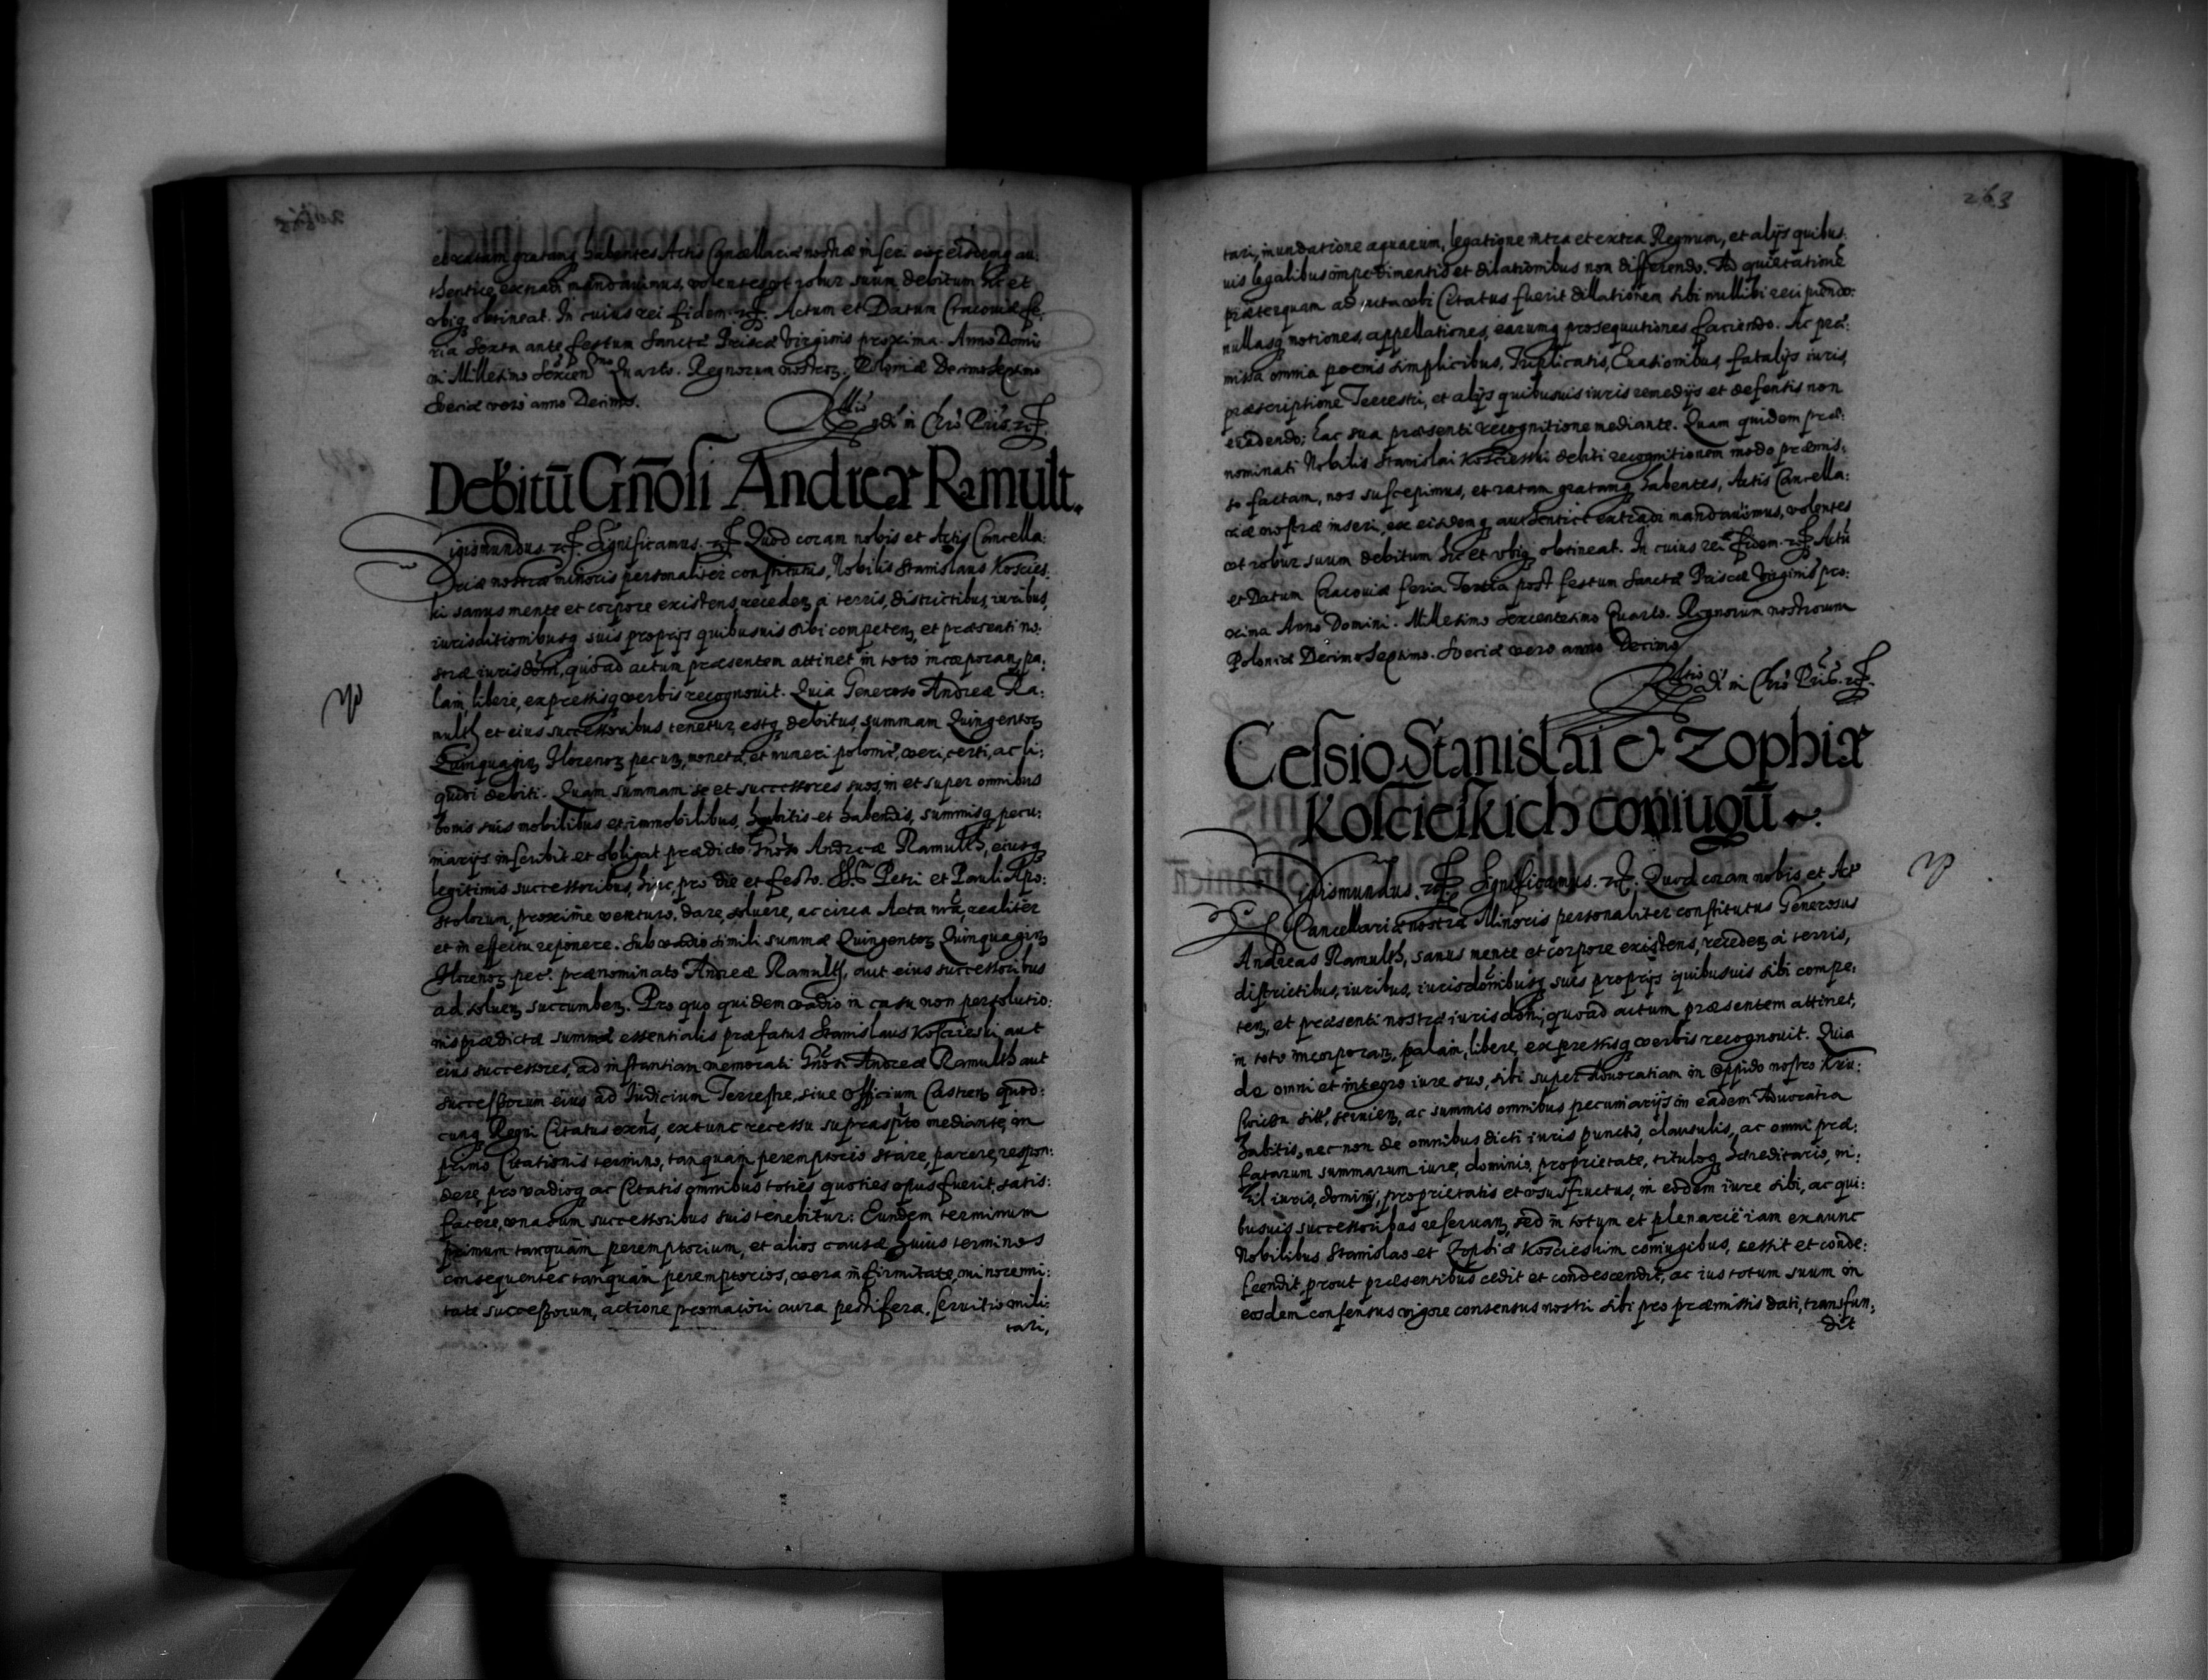 et ratam gratamq habentes Actis Cancellariæ nostræ inseri ex eisdemq au:
thentice extradi mandauimus, volentes vt robur suum debitum hic et
vbiq obtineat. In cuius rei fidem. Actum et Datum Cracouiæ fe:
ria sexta ante festum Sanctæ Priscæ Virginis proxima. Anno Domi
ni Millesimo Sexcen Quarto. Regnorum nostroꝝ Poloniæ Decimoseptimo
Sueciæ vero anno Decimo.
in Chrō Pris
Debitū Gn̄osi Andreæ Ramult.
Sigismundus. Significamus. Quod coram nobis et Actis Cancella:
riæ nostræ minoris personaliter constitutus, Nobilis Stanislaus Koscies:
ki sanus mente et corpore existens, receden à terris, districtibus, iuribus,
iurisditionibusq suis proprijs quibusuis sibi competen, et præsenti no:
stræ iurisdōni, quoad actum præsentem attinet in toto incorporan, pa:
lam, libere, expressisq verbis recognouit. Quia Generoso Andreæ Ra:
multh et eius successoribus tenetur, estq debitus, summam Quingentoꝝ
Quinquagin florenoꝝ pecun, monetæ, et numeri polonic, veri, certi, ac li:
quidi debiti. Quam summam se et successores suos, in et super omnibus
bonis suis mobilibus et immobilibus, habitis et habendis, summisq pecu:
niarijs inscribit et obligat prædicto Gnōso Andreæ Ramulth, eiusq
legitimis successoribus, hinc, pro die et festo. SS. Petri et Pauli Apo:
stolorum, proxime venturo, dare, soluere, ac circa Acta nrā, realiter
et in effectu reponere. Sub vadio simili summæ Quingentoꝝ Quinquagin
florenoꝝ pec. prænominato Andreæ Ramulth, aut eius successoribus
ad soluen succumben. Pro quo quidem vadio in casu non persolutio:
nis prædictæ summæ essentialis præfatus Stanislaus Koscieski aut
eius successores, ad instantiam memorati Gnōsi Andreæ Ramulth aut
successorum eius ad Iudicium Terrestre, siue officium Castren quod:
cunq Regni Citatus exn̄s, extunc recessu suprascpto mediante, in
primo Citationis termino, tanquam peremptorio stare, parere, respon:
dere, pro vadioq ac Citatis omnibus toties quoties opus fuerit, satis:
facere, vna cum successoribus suis tenebitur: Eundem terminum
primum tanquam peremptorium, et alios causæ huius terminos
consequenter tanquam peremptorios, vera infirmitate, minorenni:
tate successorum, actione pro maiori aura pestifera, seruitio mili:
tari,
263
tari, inundatione aquarum, legatione intra et extra Regnum, et alijs quibus:
uis legalibus impedimentis et dilationibus non differendo. Ad quietationē
præterquam ad acta vbi Citatus fuerit dillationem sibi nullibi recipiendo:
nullasq motiones, appellationes, earumq prosequutiones faciendo. Ac præ:
missa omnia poenis simplicibus, Triplicatis, Euasionibus, fatalijs iuris,
præscriptione Terrestri, et alijs quibusuis iuris remedijs et defensis non
euadendo; hac sua præsenti recognitione mediante. Quam quidem præ:
nominati Nobilis Stanislai Koscieski debiti recognitionem modo præmis:
so factam, nos suscepimus, et ratam gratamq habentes, Actis Cancella:
riæ nostræ inseri, ex eisdemq authentice extradi mandauimus, volentes
vt robur suum debitum hic et vbiq obtineat. In cuius rei fidem. Actū
et Datum Cracouiæ feria Tertia post festum Sanctæ Priscæ Virginis pro:
xima Anno Domini. Millesimo Sexcentesimo Quarto. Regnorum nostrorum
Poloniæ Decimoseptimo. Sueciæ vero anno Decimo
in Chrō Pris
Cessio Stanislai & Zophiæ
Koscieskich coniugū
Sigismundus. Significamus. Quod coram nobis et Act
Cancellariæ nostræ Minoris personaliter constitutus Generosus
Andreas Ramulth, sanus mente et corpore existens, receden à terris,
districtibus, iuribus, iurisdōnibusq suis proprijs quibusuis sibi compe:
ten, et præsenti nostræ iurisdōni, quoad actum præsentem attinet,
in toto incorporan, palam, libere, expressisq verbis recognouit. Quia
de omni et integro iure suo, sibi super Aduocatiam in oppido nostro
seruien, ac summis omnibus pecuniarijs in eadem Aduocatia
habitis, nec non de omnibus dicti iuris punctis, clausulis, ac omni præ:
fatarum summarum iure, dominio, proprietate, tituloq hæreditario, ni:
hil iuris, dominij, proprietatis et vsusfructus, in eodem iure sibi, ac qui:
busuis successoribus reseruan, sed in totum et plenarie iam exnunc
Nobilibus Stanislao et Zophiæ Koscieskim coniugibus, cessit et conde:
scendit, prout præsentibus cedit et condescendit, ac ius totum suum in
eosdem consensus vigore consensus nostri sibi pro præmissis dati, transfun:
dit